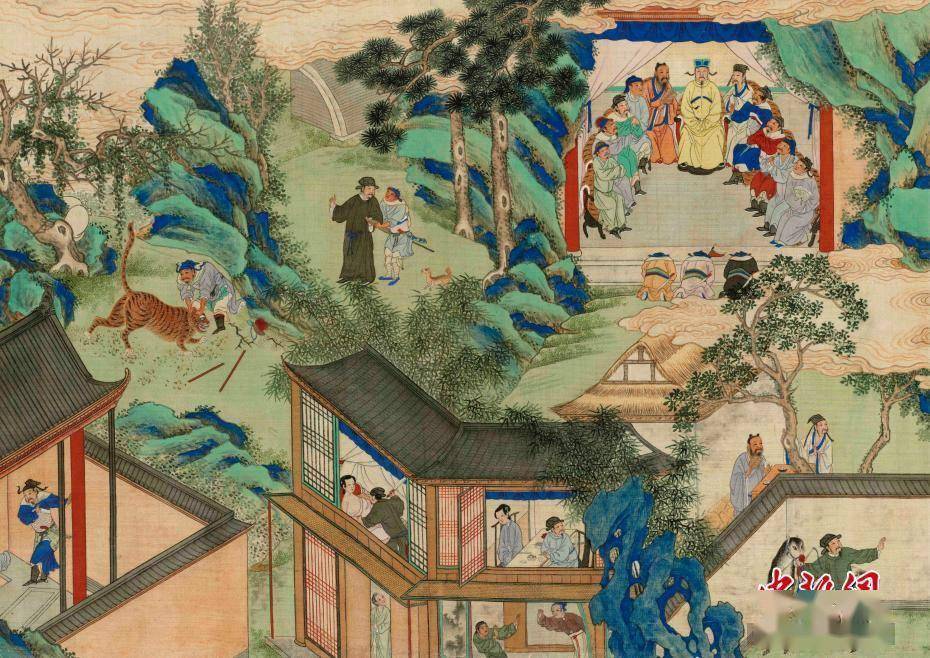 中新网